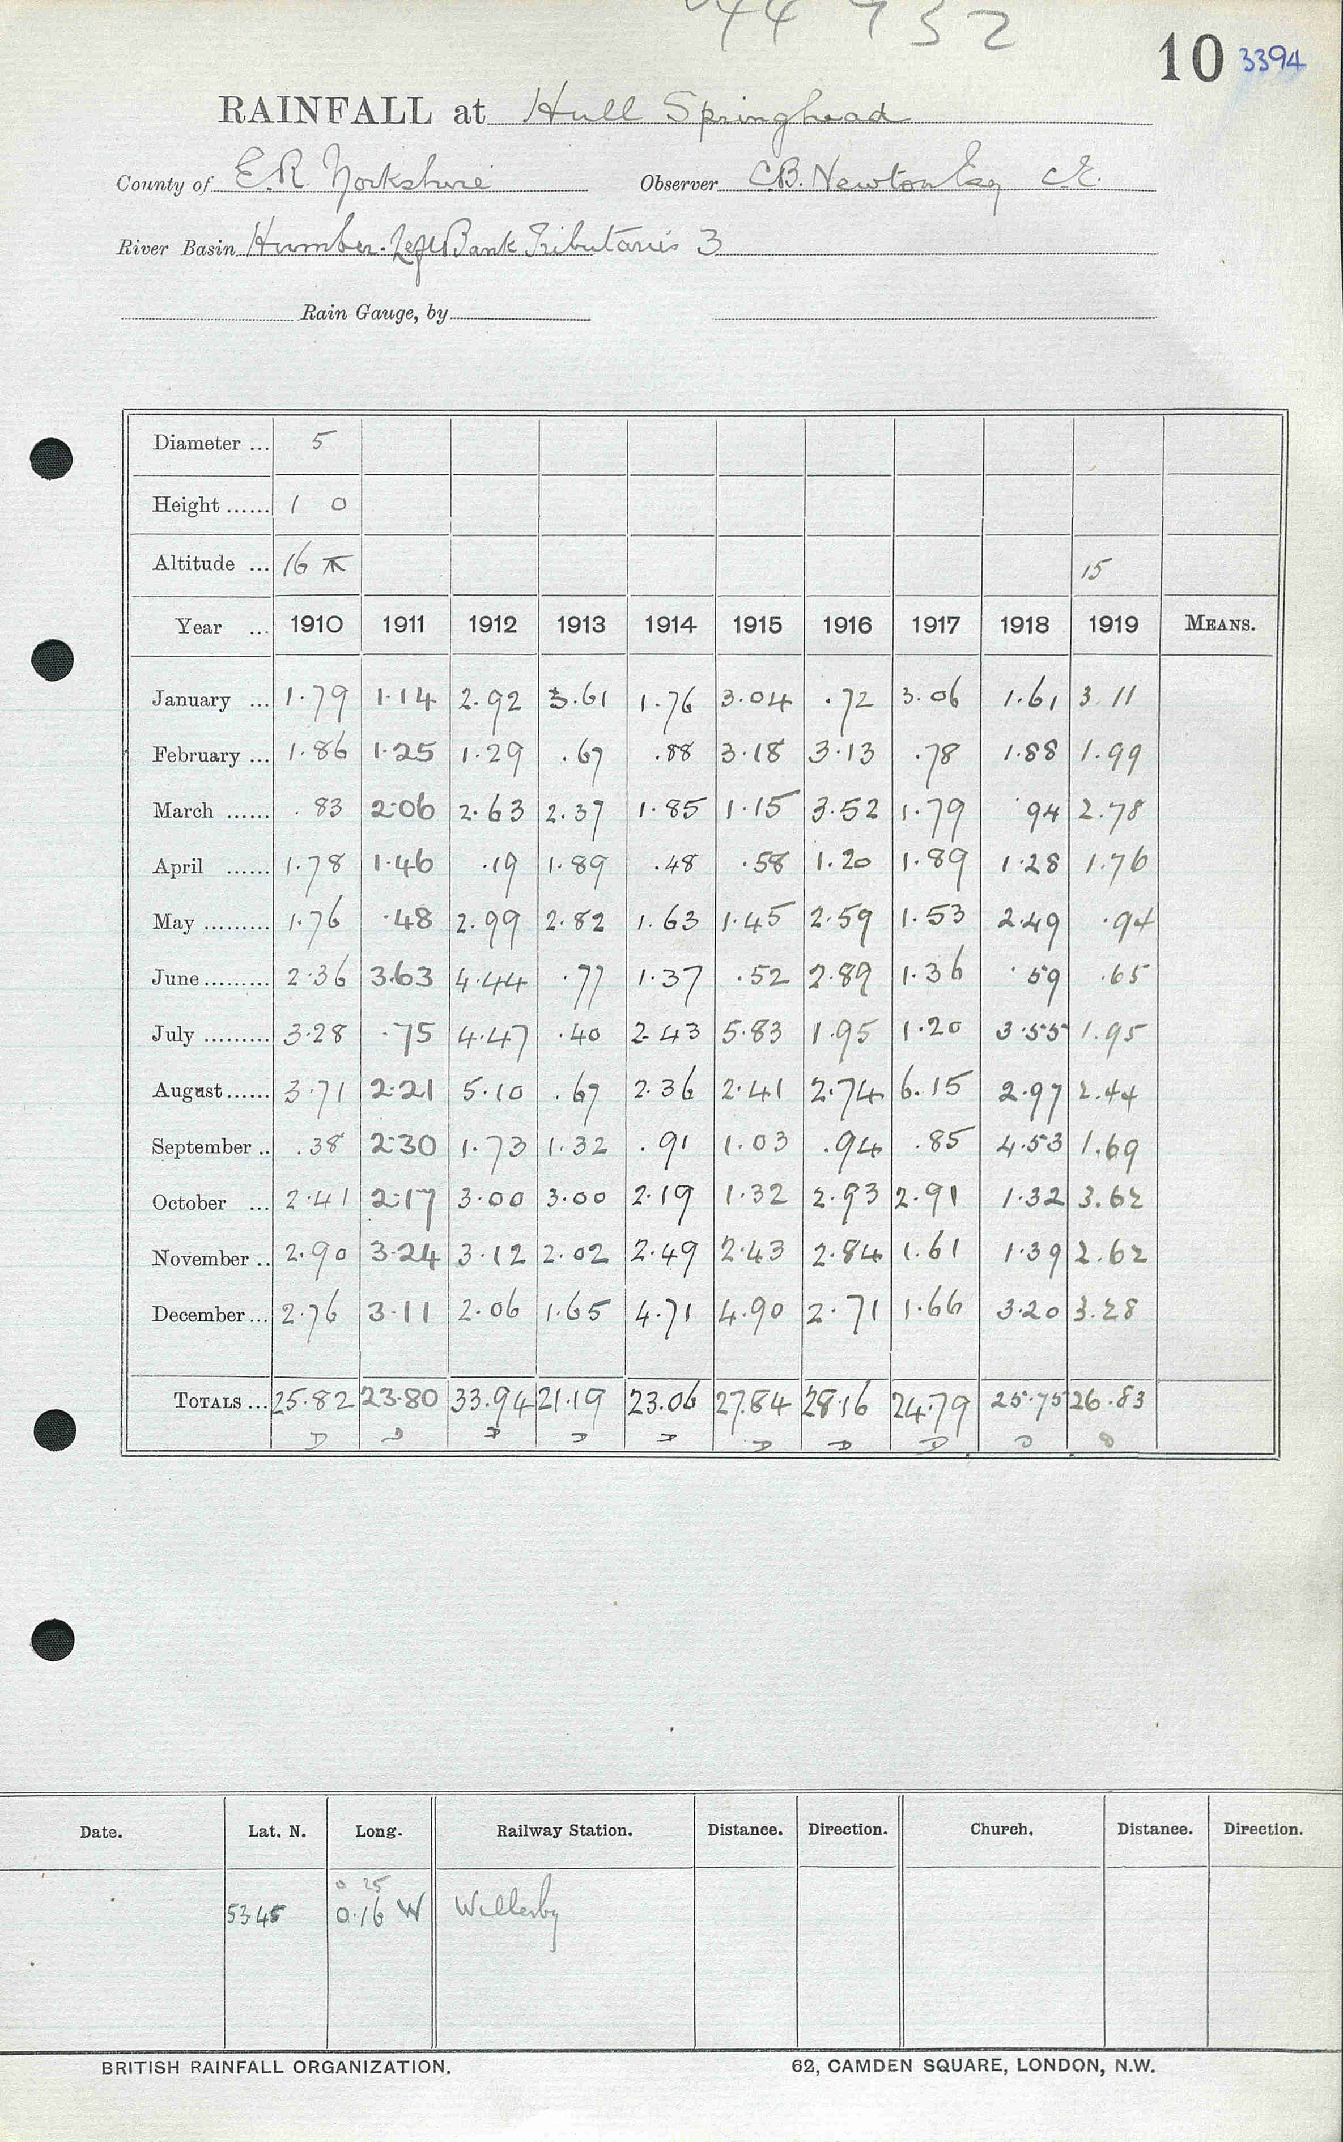 44 732
10 3394
RAINFALL at Hull Springhead
County of E.R. Yorkshire Observer C.B. Newton Esq C.E.
River Basin Humber. Left Bank Tributaries 3
Rain Gauge, by
Diameter ... 5
Height ...... 1 0
Altitude ... 16 15
Year ... 1910 1911 1912 1913 1914 1915 1916 1917 1918 1919 MEANS.
January ... 1.79 1.14 2.92 3.61 1.76 3.04 .72 3.06 1.61 3.11
February ... 1.86 1.25 1.29 .67 .88 3.18 3.13 .78 1.88 1.99
March ...... .83 2.06 2.63 2.37 1.85 1.15 3.52 1.79 .94 2.78
April ...... 1.78 1.46 .19 1.89 .48 .58 1.20 1.89 1.28 1.76
May ......... 1.76 .48 2.99 2.82 1.63 1.45 2.59 1.53 2.49 .94
June ......... 2.36 3.63 4.44 .77 1.37 .52 2.89 1.36 .59 .65
July ......... 3.28 .75 4.47 .40 2.43 5.83 1.95 1.20 3.55 1.95
August ...... 3.71 2.21 5.10 .67 2.36 2.41 2.74 6.15 2.97 2.44
September .. .38 2.30 1.73 1.32 .91 1.03 .94 .85 4.53 1.69
October ... 2.41 2.17 3.00 3.00 2.19 1.32 2.93 2.91 1.32 3.62
November .. 2.90 3.24 3.12 2.02 2.49 2.43 2.84 1.61 1.39 2.62
December ... 2.76 3.11 2.06 1.65 4.71 4.90 2.71 1.66 3.20 3.28
TOTALS ... 25.82 23.80 33.94 21.19 23.06 27.84 28.16 24.79 25.75 26.83
Date. Lat. N. Long. Railway Station. Distance. Direction. Church. Distance. Direction.
0 25
53.45 0.16 W Willerby
BRITISH RAINFALL ORGANIZATION. 62, CAMDEN SQUARE, LONDON, N.W.